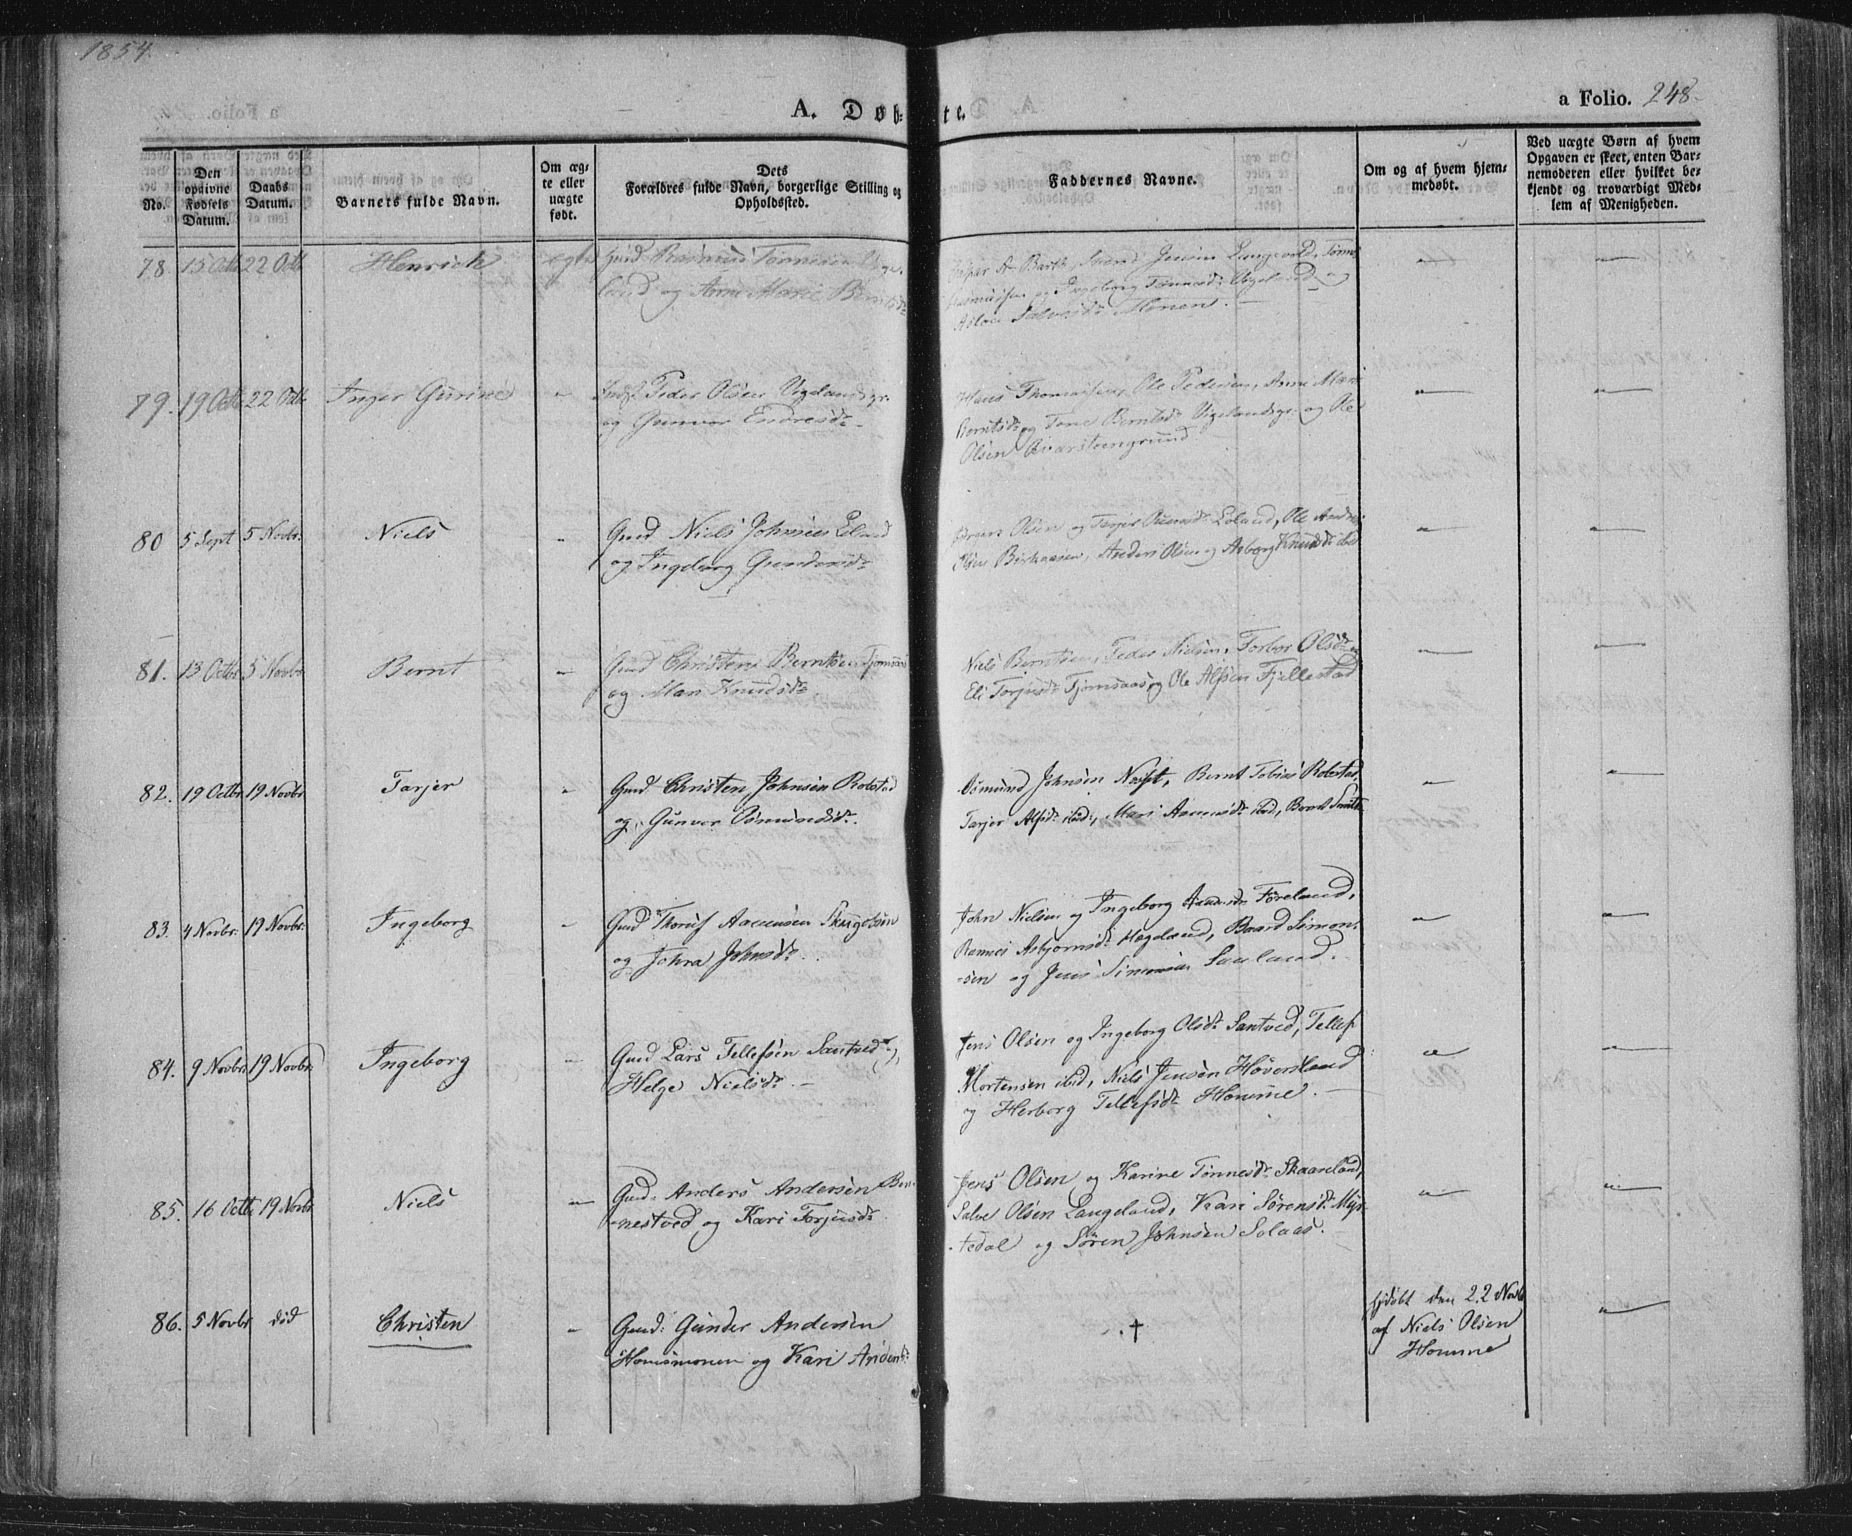 1854.
A. Døb-te.
a Folio. 248.
No.
Den opgivne Fødsels Datum.
Daabs Datum.
Barnets fulde Navn.
Om ægte eller uægte født.
Dets Forældres fulde Navn, borgerlige Stilling og Opholdssted.
Faddernes Navne.
Om og af hvem hjemmedøbt.
Ved uægte Børn af hvem Opgaven er skeet, enten Barnemoderen eller hvilket bekjendt og troværdigt Medlem af Menigheden.
78. 15 Octb 22 Octb Henrick ægte Gmd Rasmus Tønnesen
land og Anne Marie
Jesper A. Barth, Svend Jensen Langevold, Tønnes
Rasmussen og Ingeborg Tønnesdr Vigeland og
Salvesdr Monen.
79. 19 Octb 22 Octb Inger Gurine - Peder Olsen Vigelandsgr.
og Gunvor Endresdr.
Hans Thomassen, Ole Pedersen, Anne Marie
Berntsdr og Tone Berntsdr Vigelandsgr. og Ole
Olsen Qvarsteengrund
80 5 Sept 5 Novbr. Niels - Gmd Niels Johnsen Eland
og Ingeborg Gundersdr
Olsen og Tarjer Eeland, Ole
Olsen Birkaasen, Anders Olsen og Asborg Knudsdr ibid
81. 13 Octbr 5 Novbr Bernt - Gmd Christen Berntsen Tjomsaas
og Mari Knudsdr.
Niels Berntsen, Peder Nielsen, Torbor Olsdr og
Eli Torjusdr Tjomsaas og Ole Alfsen Fjellestad
82. 19 Octbr 19 Novbr Tarjer - Gmd Christen Johnsen Robstad
og Gunvor Osmundsdr.
Osmund Johnsen, Bernt Tobias Robstad,
Tarjer Alfsdr ibid:, Mari Aanensdr ibid, Berent
83. 4 Novbr. 19 Novbr. Ingeborg - Gmd Thorus Aanensen
og Johra Johnsdr.
John Nielsen og Ingeborg Føreland,
Asbjørnsdr Hægeland, Baard Simon-
sen og Jens Simonsen Lauland.
84. 9 Novbr. 19 Novbr. Ingeborg - Gmd Lars Tellefsen Santved og
Helge Nielsdr. -
Jens Olsen og Ingeborg Olsdr Santved, Tellef
Mortensen ibid, Niels Jensen Hoversland
og Herborg Tellefsdr Homme. -
85. 16 Octb 19 Novbr Niels - Gmd: Anders Andersen Ber-
nestved og Kari Torjusdr.
Jens Olsen og Karine Tønnesdr Skaareland,
Salve Olsen Langeland, Kari Sørensdr Myr-
tedal og Søren Johnsen Solaas.
86. 5 Novbr død Christen - Gmd: Gunder Andersen
Homsmonen og Kari Andersdr
. †
hjdøbt den 22 Novb
af Niels Olsen
Homme